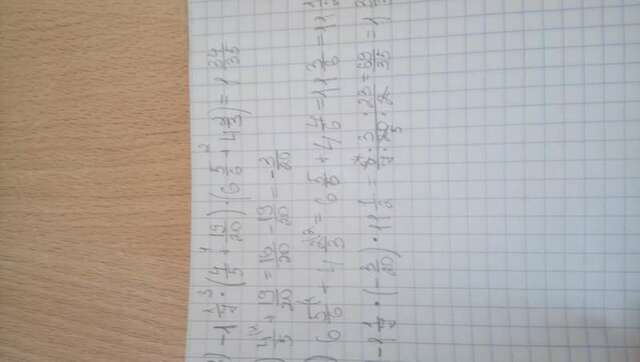 ) -1 1/7 ·³ (4/5 +¹ 19/20) · (6 5/6 +² 4 2/3) = 1 34/35
) 4/5 + 19/20 = 16/20 - 19/20 = -3/20
) 6 5/6 + 4 2/3 = 6 5/6 + 4 4/6 = 11 3/6 = 11 1/2
-1 1/7 · (-3/20) · 11 1/2 = 8 · 3 · 23 / 7 · 20 · 2 = 69/35 = 1